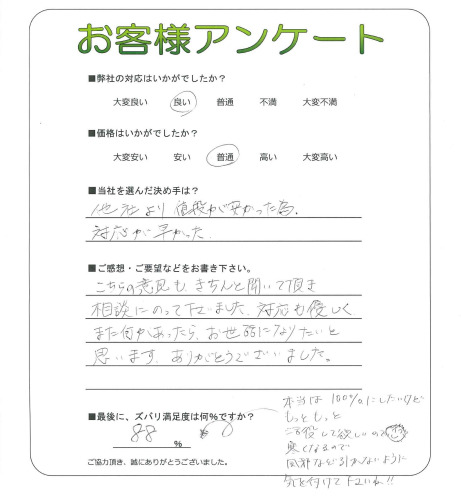 お客様アンケート
■弊社の対応はいかがでしたか？
大変良い 良い 普通 不満 大変不満
■価格はいかがでしたか？
大変安い 安い 普通 高い 大変高い
■当社を選んだ決め手は？
他社より値段が安かった為.
対応が早かった.
■ご感想・ご要望などをお書き下さい。
こちらの意見も きちんと聞いて頂き
相談にのって下さいました. 対応も優しく
また何かあったら、お世話になりたいと
思います. ありがとうございました。
■最後に、ズバリ満足度は何%ですか？
88 %
本当は100%にしたいけど
もっともっと
活役して欲しいので
暑くなるので
気を付けて下さいね!!
ご協力頂き、誠にありがとうございました。